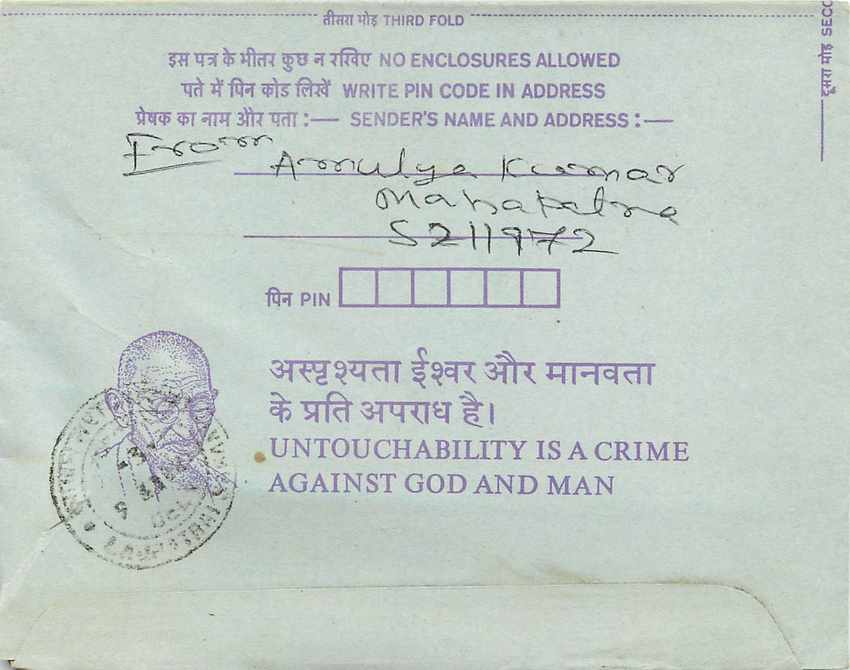 तीसरा मोड़ THIRD FOLD
दूसरा मोड़ SECO
इस पत्र के भीतर कुछ न रखिए NO ENCLOSURES ALLOWED
पते में पिन कोड लिखें WRITE PIN CODE IN ADDRESS
प्रेषक का नाम और पता :— SENDER'S NAME AND ADDRESS :—
From
Amulya Kumar
Mahapatra
5211972
पिन PIN
अस्पृश्यता ईश्वर और मानवता
के प्रति अपराध है।
UNTOUCHABILITY IS A CRIME
AGAINST GOD AND MAN